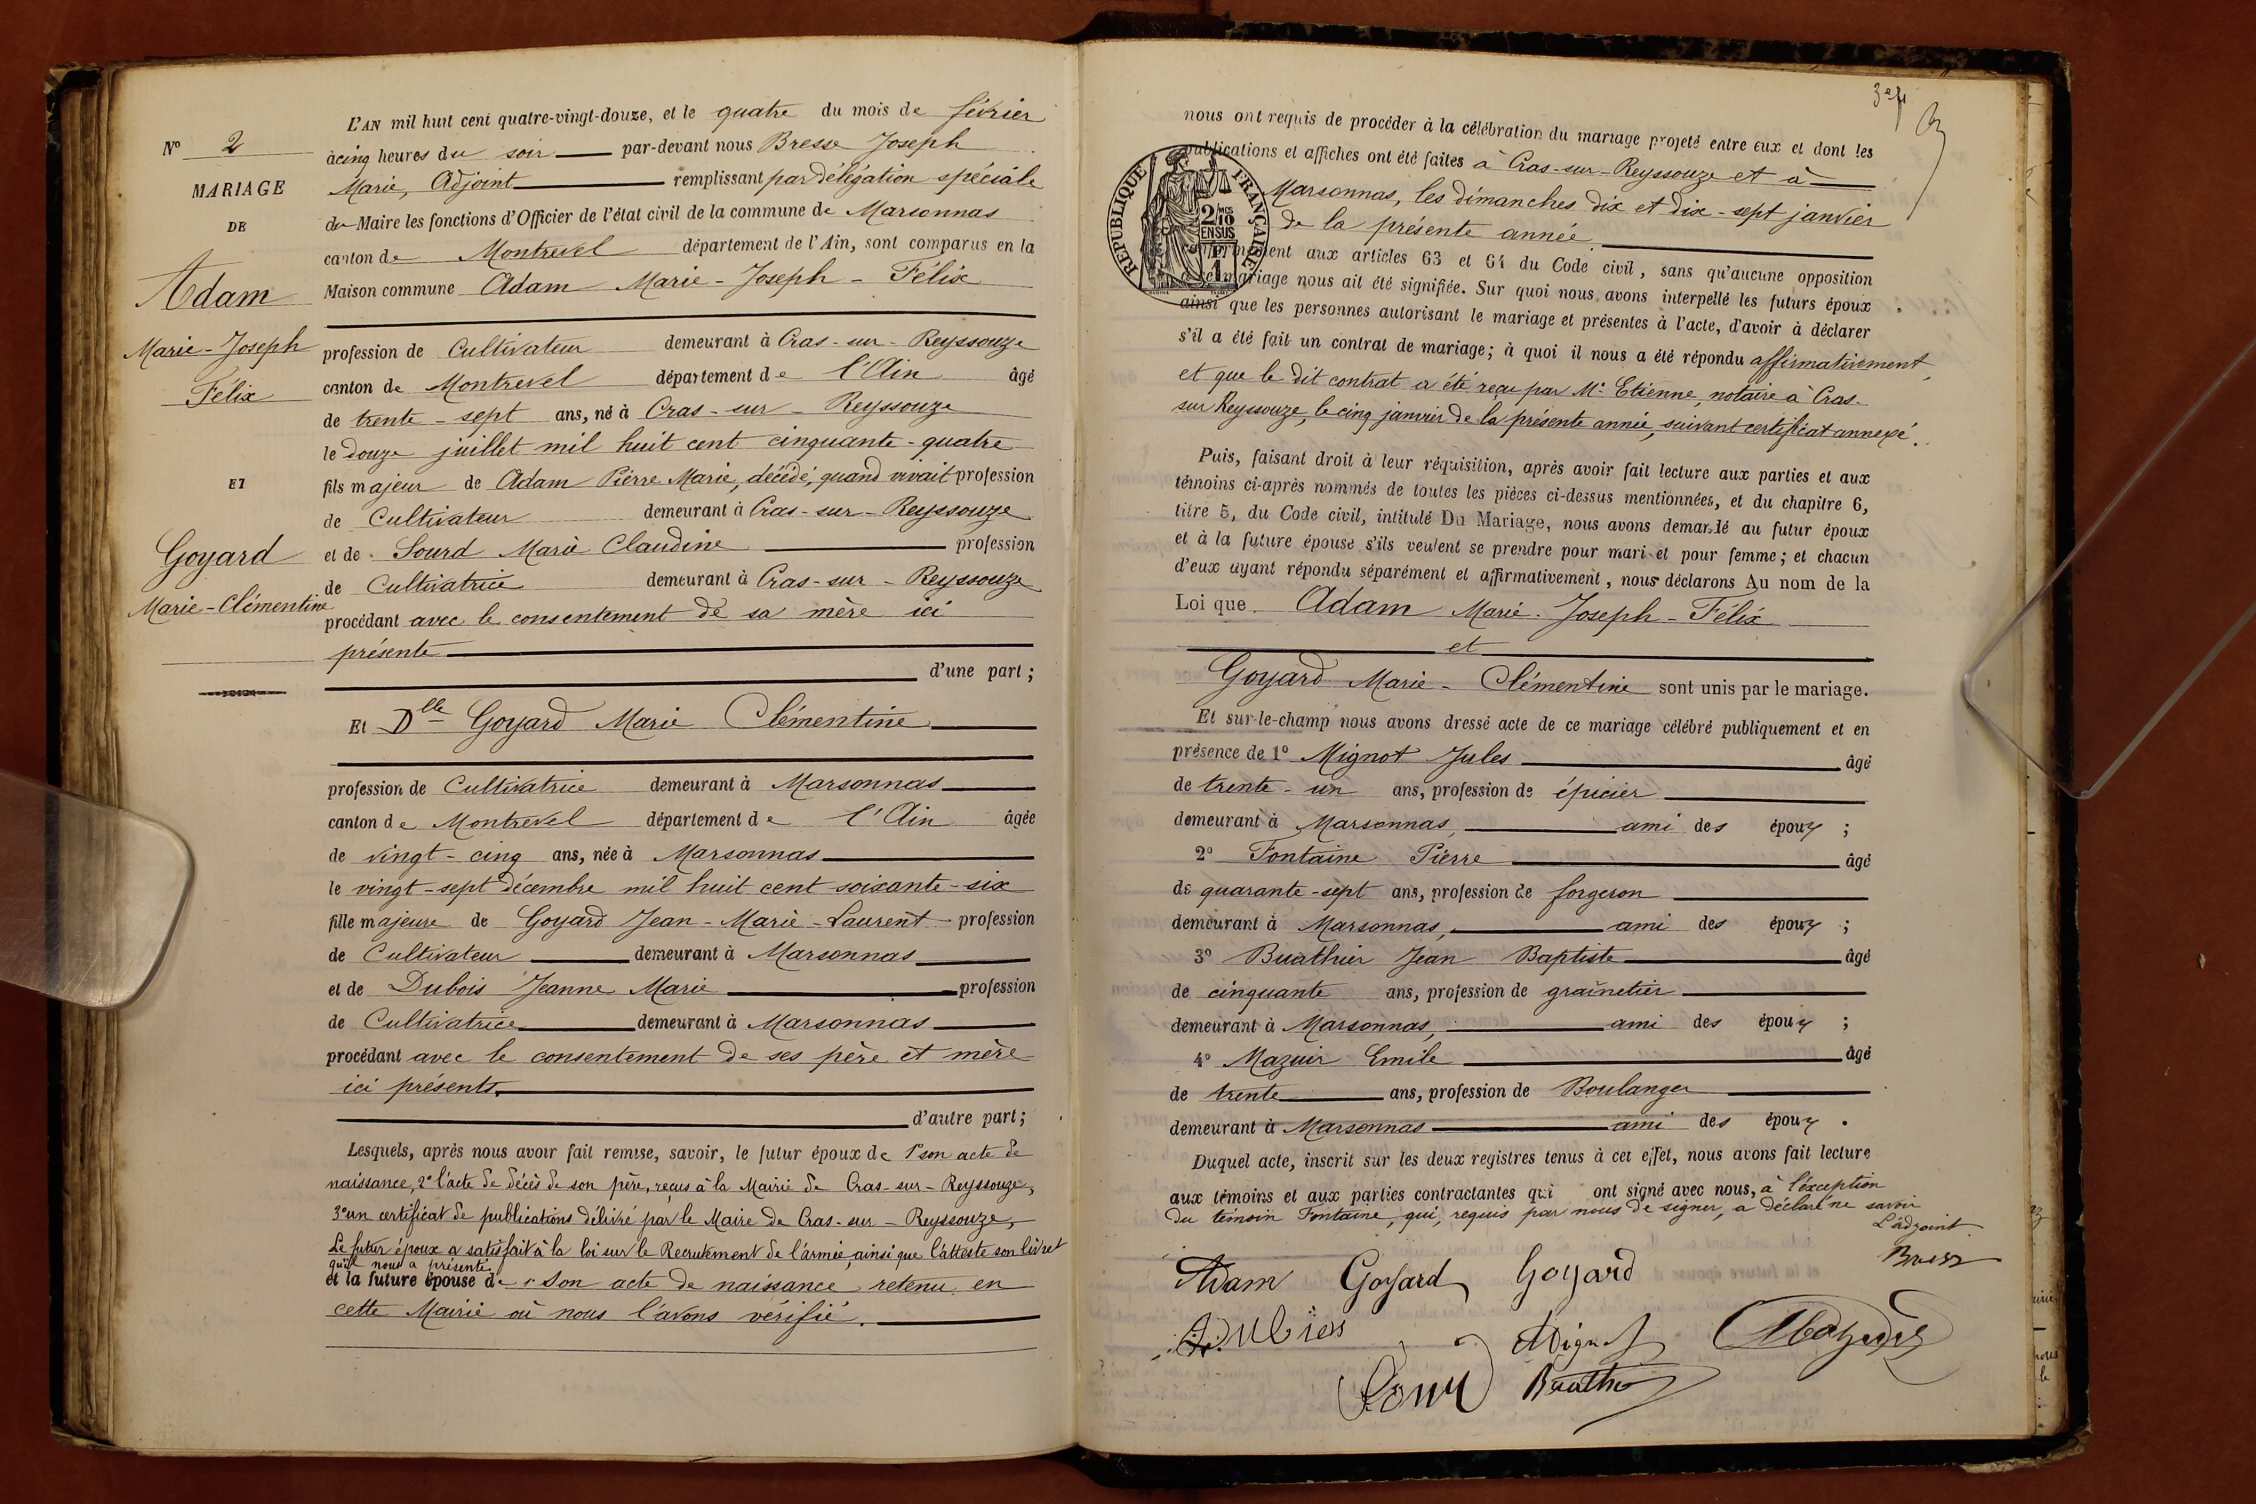 L'AN mil huit cent quatre-vingt-douze, et le quatre du mois de février
N° 2
à cinq heures du soir par-devant nous Bresse Joseph
MARIAGE
Marie, Adjoint remplissant par délégation spéciale
DE
du Maire les fonctions d'Officier de l'état civil de la commune de Marsonnas
canton de Montrevel département de l'Ain, sont comparus en la
Adam
Maison commune Adam Marie-Joseph-Félix
Marie-Joseph
profession de Cultivateur demeurant à Cras-sur-Reyssouze
Félix
canton de Montrevel département de l'Ain âgé
de trente-sept ans, né à Cras-sur-Reyssouze
le douze juillet mil huit cent cinquante-quatre
ET
fils majeur de Adam Pierre Marie, décédé, quand vivait profession
de Cultivateur demeurant à Cras-sur-Reyssouze
Goyard
et de Sourd Marie Claudine profession
de Cultivatrice demeurant à Cras-sur-Reyssouze
Marie-Clémentine
procédant avec le consentement de sa mère ici
présente
d'une part;
Et Dlle Goyard Marie Clémentine
profession de Cultivatrice demeurant à Marsonnas
canton de Montrevel département de l'Ain âgée
de vingt-cinq ans, née à Marsonnas
le vingt-sept décembre mil huit cent soixante-six
fille majeure de Goyard Jean-Marie-Laurent profession
de Cultivateur demeurant à Marsonnas
et de Dubois Jeanne Marie profession
de Cultivatrice demeurant à Marsonnas
procédant avec le consentement de ses père et mère
ici présents.
d'autre part;
Lesquels, après nous avoir fait remise, savoir, le futur époux de 1° son acte de
naissance, 2° l'acte de décès de son père, reçus à la Mairie de Cras-sur-Reyssouze,
3° un certificat de publications délivré par le Maire de Cras-sur-Reyssouze,
Le futur époux a satisfait à la loi sur le Recrutement de l'armée, ainsi que l'atteste son livret
qu'il nous a présenté
et la future épouse de 1° Son acte de naissance retenu en
cette Mairie où nous l'avons vérifié.
3e f
nous ont requis de procéder à la célébration du mariage projeté entre eux et dont les
publications et affiches ont été faites à Cras-sur-Reyssouze et à
Marsonnas, les dimanches dix et dix-sept janvier
de la présente année
REPUBLIQUE FRANÇAISE
2/10 EN SUS
1F
conformément aux articles 63 et 64 du Code civil, sans qu'aucune opposition
à ce mariage nous ait été signifiée. Sur quoi nous avons interpellé les futurs époux
ainsi que les personnes autorisant le mariage et présentes à l'acte, d'avoir à déclarer
s'il a été fait un contrat de mariage; à quoi il nous a été répondu affirmativement,
et que le dit contrat a été reçu par Me Etienne, notaire à Cras-
sur Reyssouze, le cinq janvier de la présente année, suivant certificat annexé.
Puis, faisant droit à leur réquisition, après avoir fait lecture aux parties et aux
témoins ci-après nommés de toutes les pièces ci-dessus mentionnées, et du chapitre 6,
titre 5, du Code civil, intitulé Du Mariage, nous avons demandé au futur époux
et à la future épouse s'ils veulent se prendre pour mari et pour femme; et chacun
d'eux ayant répondu séparément et affirmativement, nous déclarons Au nom de la
Loi que Adam Marie-Joseph-Félix
et
Goyard Marie-Clémentine sont unis par le mariage.
Et sur-le-champ nous avons dressé acte de ce mariage célébré publiquement et en
présence de 1° Mignot Jules âgé
de trente-un ans, profession de épicier
demeurant à Marsonnas, ami des époux;
2° Fontaine Pierre âgé
de quarante-sept ans, profession de forgeron
demeurant à Marsonnas, ami des époux;
3° Buathier Jean Baptiste âgé
de cinquante ans, profession de grainetier
demeurant à Marsonnas, ami des époux;
4° Mazuir Emile âgé
de trente ans, profession de Boulanger
demeurant à Marsonnas ami des époux.
Duquel acte, inscrit sur les deux registres tenus à cet effet, nous avons fait lecture
aux témoins et aux parties contractantes qui ont signé avec nous, à l'exception
du témoin Fontaine, qui, requis par nous de signer, a déclaré ne savoir
L'adjoint
Adam Goyard Goyard Bresse
Mignot